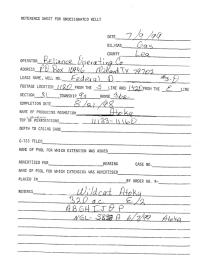 REFERENCE SHEET FOR UNDESIGNATED WELLS
DATE 7/9/99
OIL/GAS Gas
COUNTY Lea
OPERATOR Reliance Operating Co
ADDRESS PO Box Midland TX 79702
LEASE NAME, WELL NO. Federal D
FOOTAGE LOCATION FROM THE S LINE AND FROM THE E LINE
SECTION 31 TOWNSHIP 9s RANGE 36e
COMPLETION DATE 8/21/98
NAME OF PRODUCING FORMATION Atoka
TOP OF PERFORATIONS
DEPTH TO CASING SHOE
C-123 FILED
NAME OF POOL FOR WHICH EXTENSION WAS ASKED
ADVERTISED FOR HEARING CASE NO.
NAME OF POOL FOR WHICH ADVERTISED
PLACED IN BY ORDER NO. R-
REMARKS Wildcat Atoka
320 ac E/2
ABGHIJOP
NSL- 6/3/99 Atoka